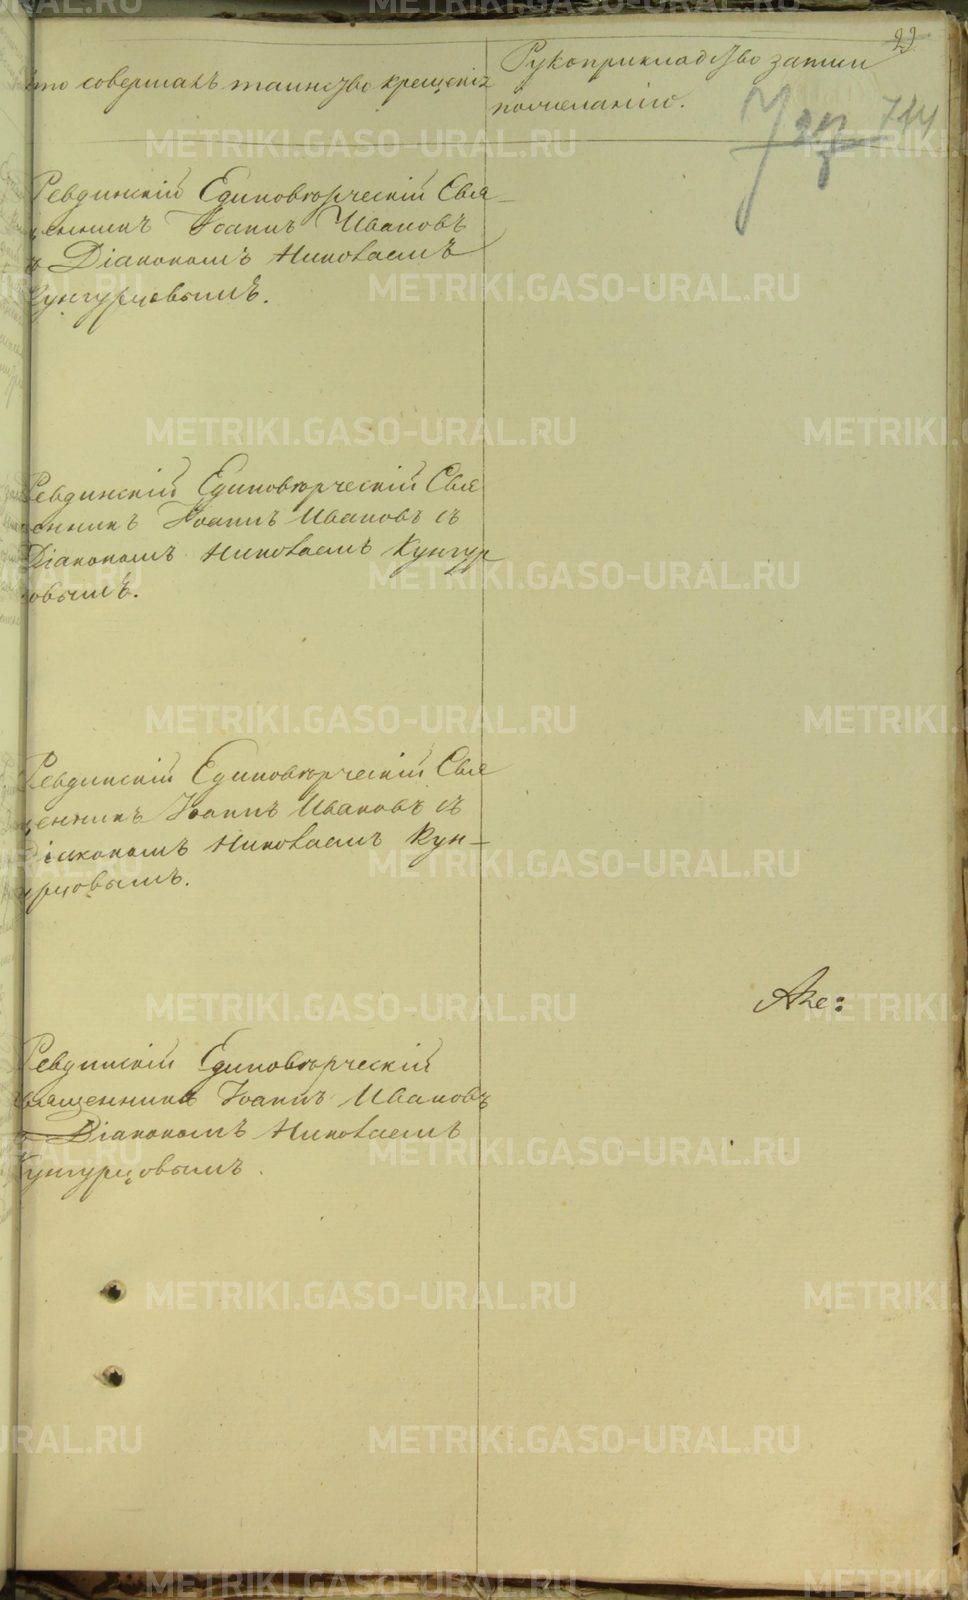 Кто совершалъ таинство крещенія
Рукоприкладство записи
по желанію.
22
714
Ревдинскій Единовѣрческій Свя-
щенникъ Іоаннъ Ивановъ
съ Діакономъ Николаемъ
Кунгурцовымъ.
Ревдинскій Единовѣрческій Свя
щенникъ Іоаннъ Ивановъ съ
Діакономъ Николаемъ Кунгур
цовымъ.
Ревдинскій Единовѣрческій Свя
щенникъ Іоаннъ Ивановъ съ
Діакономъ Николаемъ Кун-
гурцовымъ.
Ревдинскій Единовѣрческій
Священникъ Іоаннъ Ивановъ
съ Діакономъ Николаемъ
Кунгурцовымъ.
METRIKI.GASO-URAL.RU